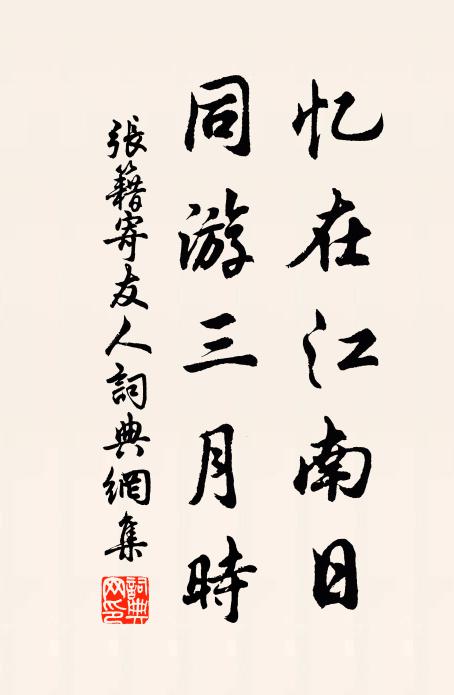 忆在江南日
同游三月時
張籍寄友人詞典網集
詞典
网印